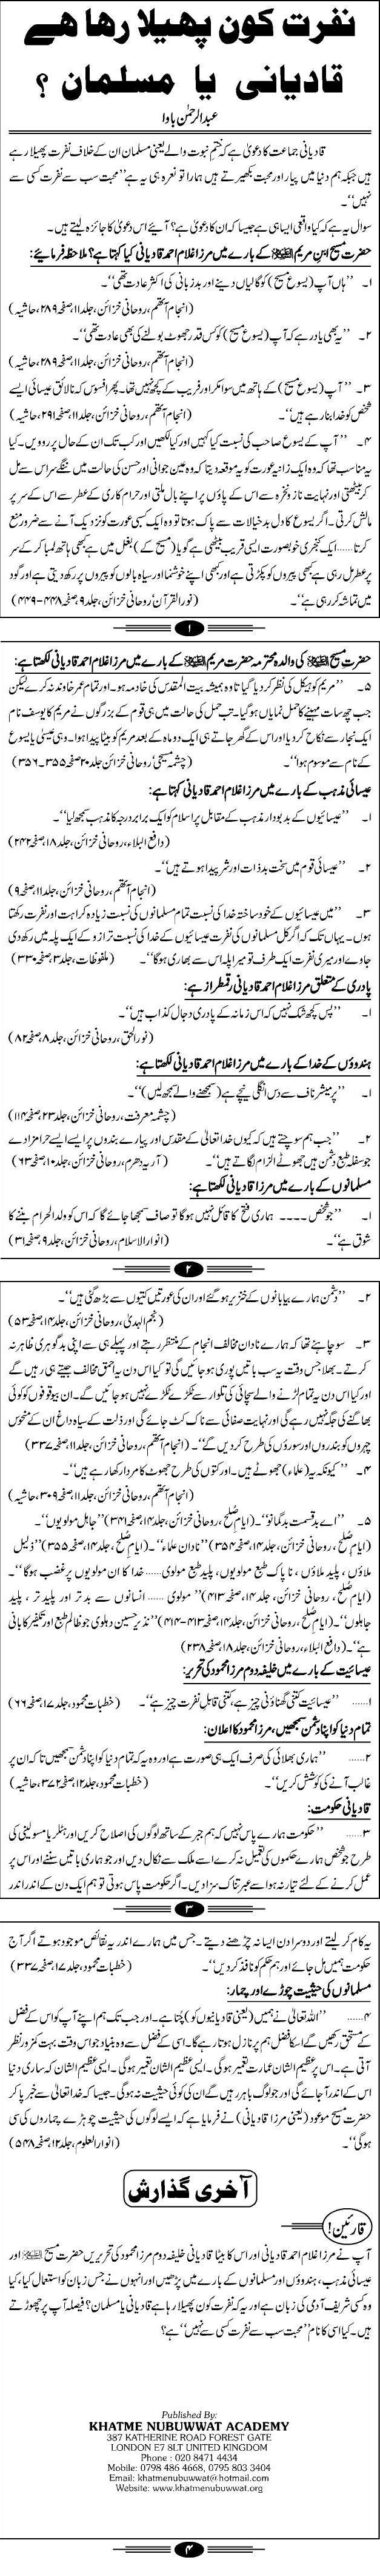 نفرت کون پھیلا رہا ہے
قادیانی یا مسلمان ؟
عبدالرحمٰن باوا
قادیانی جماعت کا دعویٰ ہے کہ ختم نبوت والے یعنی مسلمان ان کے خلاف نفرت پھیلا رہے
ہیں جبکہ ہم دنیا میں پیار اور محبت بکھیرتے ہیں ہمارا تو نعرہ ہی یہ ہے ”محبت سب سے نفرت کسی سے
نہیں“۔
سوال یہ ہے کہ کیا واقعی ایسا ہی ہے جیسا کہ ان کا دعویٰ ہے؟ آئیے اس دعویٰ کا جائزہ لیتے ہیں۔
حضرت مسیح ابن مریم کے بارے میں مرزا غلام احمد قادیانی کیا کہتا ہے؟ ملاحظہ فرمائیے:
۱۔ ”ہاں آپ (یسوع مسیح) کو گالیاں دینے اور بدزبانی کی اکثر عادت تھی“۔
(انجام آتھم، روحانی خزائن، جلد ۱۱ صفحہ ۲۸۹، حاشیہ)
۲۔ ”یہ بھی یاد رہے کہ آپ (یسوع مسیح) کو کس قدر جھوٹ بولنے کی بھی عادت تھی“۔
(انجام آتھم، روحانی خزائن، جلد ۱۱ صفحہ ۲۸۹، حاشیہ)
۳۔ ”آپ (یسوع مسیح) کے ہاتھ میں سوا مکر اور فریب کے کچھ نہیں تھا۔ پھر افسوس کہ نالائق عیسائی ایسے
شخص کو خدا بنا رہے ہیں“۔ (انجام آتھم، روحانی خزائن، جلد ۱۱ صفحہ ۲۹۱، حاشیہ)
۴۔ ”آپ کے یسوع صاحب کی نسبت کیا کہیں اور کیا لکھیں اور کب تک ان کے حال پر روویں۔ کیا
یہ مناسب تھا کہ وہ ایک زانیہ عورت کو یہ موقعہ دیتا کہ وہ عین جوانی اور حسن کی حالت میں ننگے سر اس سے مل
کر بیٹھتی اور نہایت ناز و نخرہ سے اس کے پاؤں پر اپنے بال ملتی اور حرام کاری کے عطر سے اس کے سر پر
مالش کرتی۔ اگر یسوع کا دل بدخیالات سے پاک ہوتا تو وہ ایک کسبی عورت کو نزدیک آنے سے ضرور منع
کرتا ...... ایک کنجری خوبصورت ایسی قریب بیٹھی ہے گویا (مسیح کے) بغل میں ہے کبھی ہاتھ لمبا کر کے سر
پر عطر مل رہی ہے کبھی پیروں کو پکڑتی ہے اور کبھی اپنے خوشنما اور سیاہ بالوں کو پیروں پر رکھ دیتی ہے اور گود
میں تماشہ کر رہی ہے“۔ (نور القرآن، روحانی خزائن، جلد ۹ صفحہ ۴۴۸-۴۴۹)
۱
حضرت مسیح کی والدہ محترمہ حضرت مریم کے بارے میں مرزا غلام احمد قادیانی لکھتا ہے:
۵۔ ”مریم کو ہیکل کی نظر کر دیا گیا تا وہ ہمیشہ بیت المقدس کی خادمہ ہو اور تمام عمر خاوند نہ کرے لیکن
جب چھ سات مہینے کا حمل نمایاں ہو گیا۔ تب حمل کی حالت میں ہی قوم کے بزرگوں نے مریم کا یوسف نام
ایک نجار سے نکاح کر دیا اور اس کے گھر جاتے ہی ایک دو ماہ کے بعد مریم کو بیٹا پیدا ہوا۔ وہی عیسیٰ یا یسوع
کے نام سے موسوم ہوا“۔ (چشمہ مسیحی، روحانی خزائن جلد ۲۰ صفحہ ۳۵۵-۳۵۶)
عیسائی مذہب کے بارے میں مرزا غلام احمد قادیانی کہتا ہے:
۱۔ ”عیسائیوں کے بدبودار مذہب کے مقابل پر اسلام کو ایک برابر درجہ کا مذہب سمجھ لیا“۔
(دافع البلاء، روحانی خزائن، جلد ۱۸، صفحہ ۲۴۲)
۲۔ ”عیسائی قوم میں سخت بدذات اور شریر پیدا ہوتے ہیں“۔
(انجام آتھم، روحانی خزائن، جلد ۱۱ صفحہ ۹)
۳۔ ”میں عیسائیوں کے خود ساختہ خدا کی نسبت تمام مسلمانوں کی نسبت زیادہ کراہت اور نفرت رکھتا
ہوں۔ یہاں تک کہ اگر کل مسلمانوں کی نفرت عیسائیوں کے خدا کی نسبت ترازو کے ایک پلہ میں رکھ دی
جاوے اور میری نفرت ایک طرف تو میرا پلہ اس سے بھاری ہوگا“۔ (ملفوظات، جلد ۳، صفحہ ۳۳۰)
پادری کے متعلق مرزا غلام احمد قادیانی رقمطراز ہے:
۱۔ ”پس کچھ شک نہیں کہ اس زمانہ کے پادری دجال کذاب ہیں“۔
(نور الحق، روحانی خزائن، جلد ۸، صفحہ ۸۲)
ہندوؤں کے خدا کے بارے میں مرزا غلام احمد قادیانی لکھتا ہے:
۱۔ ”پرمیشر ناف سے دس انگلی نیچے ہے (سمجھنے والے سمجھ لیں)“۔
(چشمہ معرفت، روحانی خزائن، جلد ۲۳، صفحہ ۱۱۴)
۲۔ ”جب ہم سوچتے ہیں کہ کیوں خدا تعالیٰ کے مقدس اور پیارے بندوں پر ایسے ایسے حرامزادے
جو سفلہ طبع دشمن ہیں جھوٹے الزام لگاتے ہیں“۔ (آریہ دھرم، روحانی خزائن، جلد ۱۰، صفحہ ۶۳)
مسلمانوں کے بارے میں مرزا قادیانی لکھتا ہے:
۱۔ ”جو شخص ۔۔۔۔ ہماری فتح کا قائل نہیں ہوگا تو صاف سمجھا جائے گا کہ اس کو ولد الحرام بننے کا
شوق ہے“۔ (انوار الاسلام، روحانی خزائن، جلد ۹، صفحہ ۳۱)
۲
۲۔ ”دشمن ہمارے بیابانوں کے خنزیر ہو گئے اور ان کی عورتیں کتیوں سے بڑھ گئی ہیں“۔
(نجم الہدیٰ، روحانی خزائن، جلد ۱۴، صفحہ ۵۳)
۳۔ سو چاہئے تھا کہ ہمارے نادان مخالف انجام کے منتظر رہتے اور پہلے ہی سے اپنی بدگوہری ظاہر نہ
کرتے۔ بھلا جس وقت یہ سب باتیں پوری ہو جائیں گی تو کیا اس دن یہ احمق مخالف جیتے ہی رہیں گے
اور کیا اس دن یہ تمام لڑنے والے سچائی کی تلوار سے ٹکڑے ٹکڑے نہیں ہو جائیں گے۔ ان بیوقوفوں کو کوئی
بھاگنے کی جگہ نہیں رہے گی اور نہایت صفائی سے ناک کٹ جائے گی اور ذلت کے سیاہ داغ ان کے منحوس
چہروں کو بندروں اور سوروں کی طرح کر دیں گے“۔ (انجام آتھم، روحانی خزائن، جلد ۱۱، صفحہ ۳۳۷)
۴۔ ”کیونکہ یہ (علماء) جھوٹے ہیں۔ اور کتوں کی طرح جھوٹ کا مردار کھا رہے ہیں“۔
(انجام آتھم، روحانی خزائن، جلد ۱۱، صفحہ ۳۰۹، حاشیہ)
۵۔ ”اے بدقسمت بدگمانو“۔ (ایام صلح، روحانی خزائن، جلد ۱۴، صفحہ ۳۴۱) ”جاہل مولویوں“۔
(ایام صلح، روحانی خزائن، جلد ۱۴، صفحہ ۳۵۴) ”نادان علماء“۔ (ایام صلح، جلد ۱۴، صفحہ ۳۵۵) ”ذلیل
ملاؤں، پلید ملاؤں، ناپاک طبع مولویوں، پلید طبع مولوی ...... خدا کا ان مولویوں پر غضب ہوگا“۔
(ایام صلح، روحانی خزائن، جلد ۱۴، صفحہ ۴۱۳) ”مولوی ...... انسانوں سے بدتر اور پلید تر، پلید
جاہلوں“۔ (ایام صلح، روحانی خزائن، جلد ۱۴، صفحہ ۴۱۳-۴۱۴) ”نذیر حسین دہلوی جو ظالم طبع اور تکفیر کا بانی
ہے“۔ (دافع البلاء، روحانی خزائن، جلد ۱۸، صفحہ ۲۳۸)
عیسائیت کے بارے میں خلیفہ دوم مرزا محمود کی تحریر:
۱...... ”عیسائیت کتنی گھناؤنی چیز ہے، کتنی قابل نفرت چیز ہے“۔ (خطبات محمود، جلد ۱۷، صفحہ ۶۶)
تمام دنیا کو اپنا دشمن سمجھیں، مرزا محمود کا اعلان:
۲...... ”ہماری بھلائی کی صرف ایک ہی صورت ہے اور وہ یہ کہ تمام دنیا کو اپنا دشمن سمجھیں تا کہ ان پر
غالب آنے کی کوشش کریں“۔ (خطبات محمود، جلد ۱۲، صفحہ ۳۷۲، حاشیہ)
قادیانی حکومت:
۳...... ”حکومت ہمارے پاس نہیں کہ ہم جبر کے ساتھ لوگوں کی اصلاح کریں اور ہٹلر یا مسولینی کی
طرح جو شخص ہمارے حکموں کی تعمیل نہ کرے اسے ملک سے نکال دیں اور جو ہماری باتیں سننے اور اس پر
عمل کرنے کے لئے تیار نہ ہو اسے عبرتناک سزا دیں۔ اگر حکومت پاس ہوتی تو ہم ایک دن کے اندر اندر
۳
یہ کام کر لیتے اور دوسرا دن ایسا نہ چڑھنے دیتے۔ جس میں ہمارے اندر یہ نقائص موجود ہوتے اگر آج
حکومت ہمیں مل جائے اور ہم حکم کو نافذ کر دیں“۔ (خطبات محمود، جلد ۱۷، صفحہ ۳۳۷)
مسلمانوں کی حیثیت چوڑے اور چمار:
۴...... ”اللہ تعالیٰ نے ہمیں (یعنی قادیانیوں کو) چنا ہے۔ اور جب تک ہم اپنے آپ کو اس کے فضل
کے مستحق رکھیں گے اسکا فضل ہم پر نازل ہوتا رہے گا۔ اسی کے فضل سے وہ بنیاد جو اس وقت بہت کمزور نظر
آتی ہے۔ اس پر عظیم الشان عمارت تعمیر ہوگی۔ ایسی عظیم الشان تعمیر ہوگی۔ ایسی عظیم الشان کہ ساری دنیا
اس کے اندر آ جائے گی اور جو لوگ باہر رہیں گے ان کی کوئی حیثیت نہ ہوگی۔ جیسا کہ خدا تعالیٰ سے خبر پا کر
حضرت مسیح موعود (یعنی مرزا قادیانی) نے فرمایا ہے کہ ایسے لوگوں کی حیثیت چوہڑے چماروں کی سی
ہوگی“۔ (انوار العلوم، جلد ۱۲، صفحہ ۵۴۸)
آخری گذارش
قارئین!
آپ نے مرزا غلام احمد قادیانی اور اس کا بیٹا قادیانی خلیفہ دوم مرزا محمود کی تحریریں حضرت مسیح اور
عیسائی مذہب، ہندوؤں اور مسلمانوں کے بارے میں پڑھیں اور انہوں نے جس زبان کو استعمال کیا، کیا
وہ کسی شریف آدمی کی زبان ہے اور یہ کہ نفرت کون پھیلا رہا ہے قادیانی یا مسلمان؟ فیصلہ آپ پر چھوڑتے
ہیں۔ کیا اسی کا نام ”محبت سب سے نفرت کسی سے نہیں“ ہے؟
Published By:
KHATME NUBUWWAT ACADEMY
387 KATHERINE ROAD FOREST GATE
LONDON E7 8LT UNITED KINGDOM
Phone : 020 8471 4434
Mobile: 0798 486 4668, 0795 803 3404
Email: khatmenubuwwat@hotmail.com
Website: www.khatmenubuwwat.org
۴